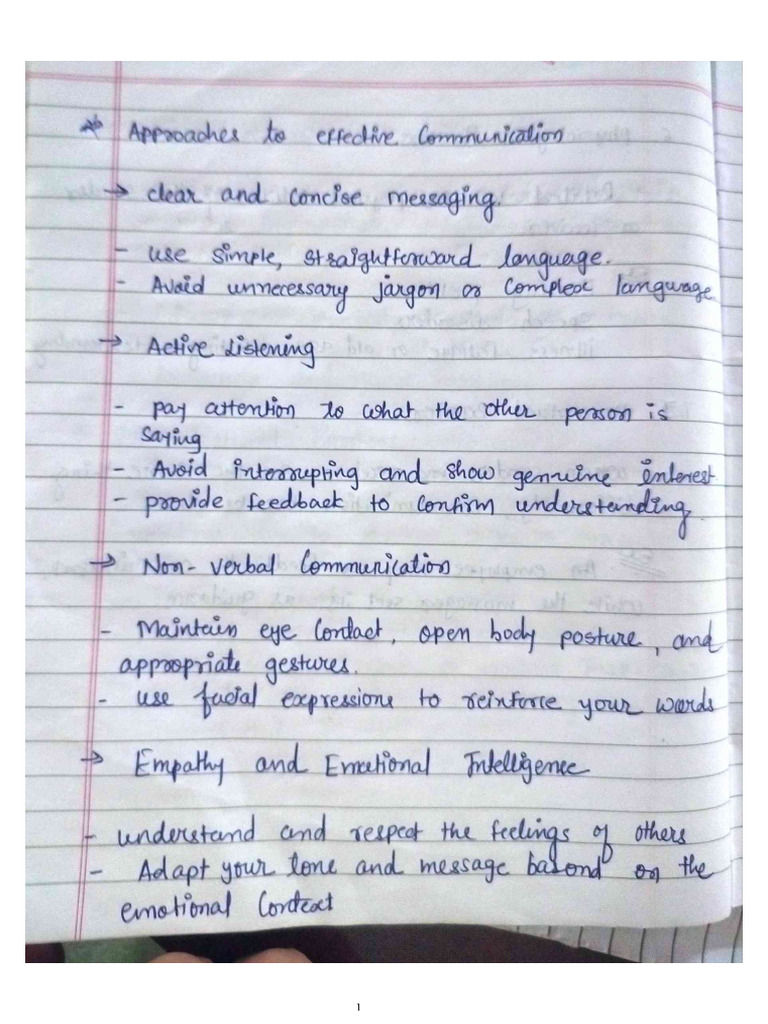 * Approaches to effective Communication
→ clear and concise messaging.
- use simple, straightforward language.
- Avoid unnecessary jargon or complex language
→ Active Listening
- pay attention to what the other person is
saying
- Avoid interrupting and show genuine interest
- provide feedback to confirm understanding.
→ Non-verbal Communication
- Maintain eye contact, open body posture, and
appropriate gestures.
- use facial expressions to reinforce your words
→ Empathy and Emotional Intelligence
- understand and respect the feelings of others
- Adapt your tone and message basond on the
emotional context
1